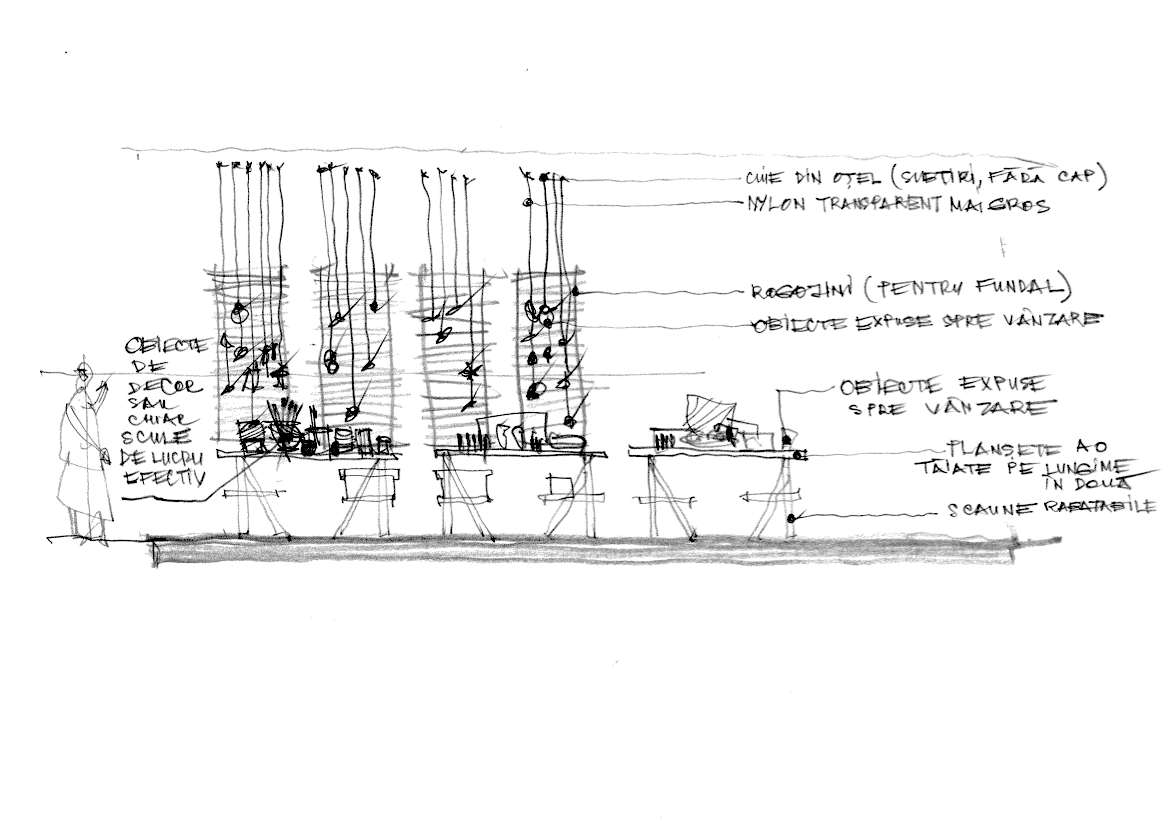 OBIECTE
DE
DECOR
SAU
CHIAR
SCULE
DE LUCRU
EFECTIV
CUIE DIN OȚEL (SUBȚIRI, FĂRĂ CAP)
NYLON TRANSPARENT MAI GROS
ROGOJINI (PENTRU FUNDAL)
OBIECTE EXPUSE SPRE VÂNZARE
OBIECTE EXPUSE
SPRE VÂNZARE
PLANȘETE A0
TĂIATE PE LUNGIME
ÎN DOUĂ
SCAUNE RABATABILE